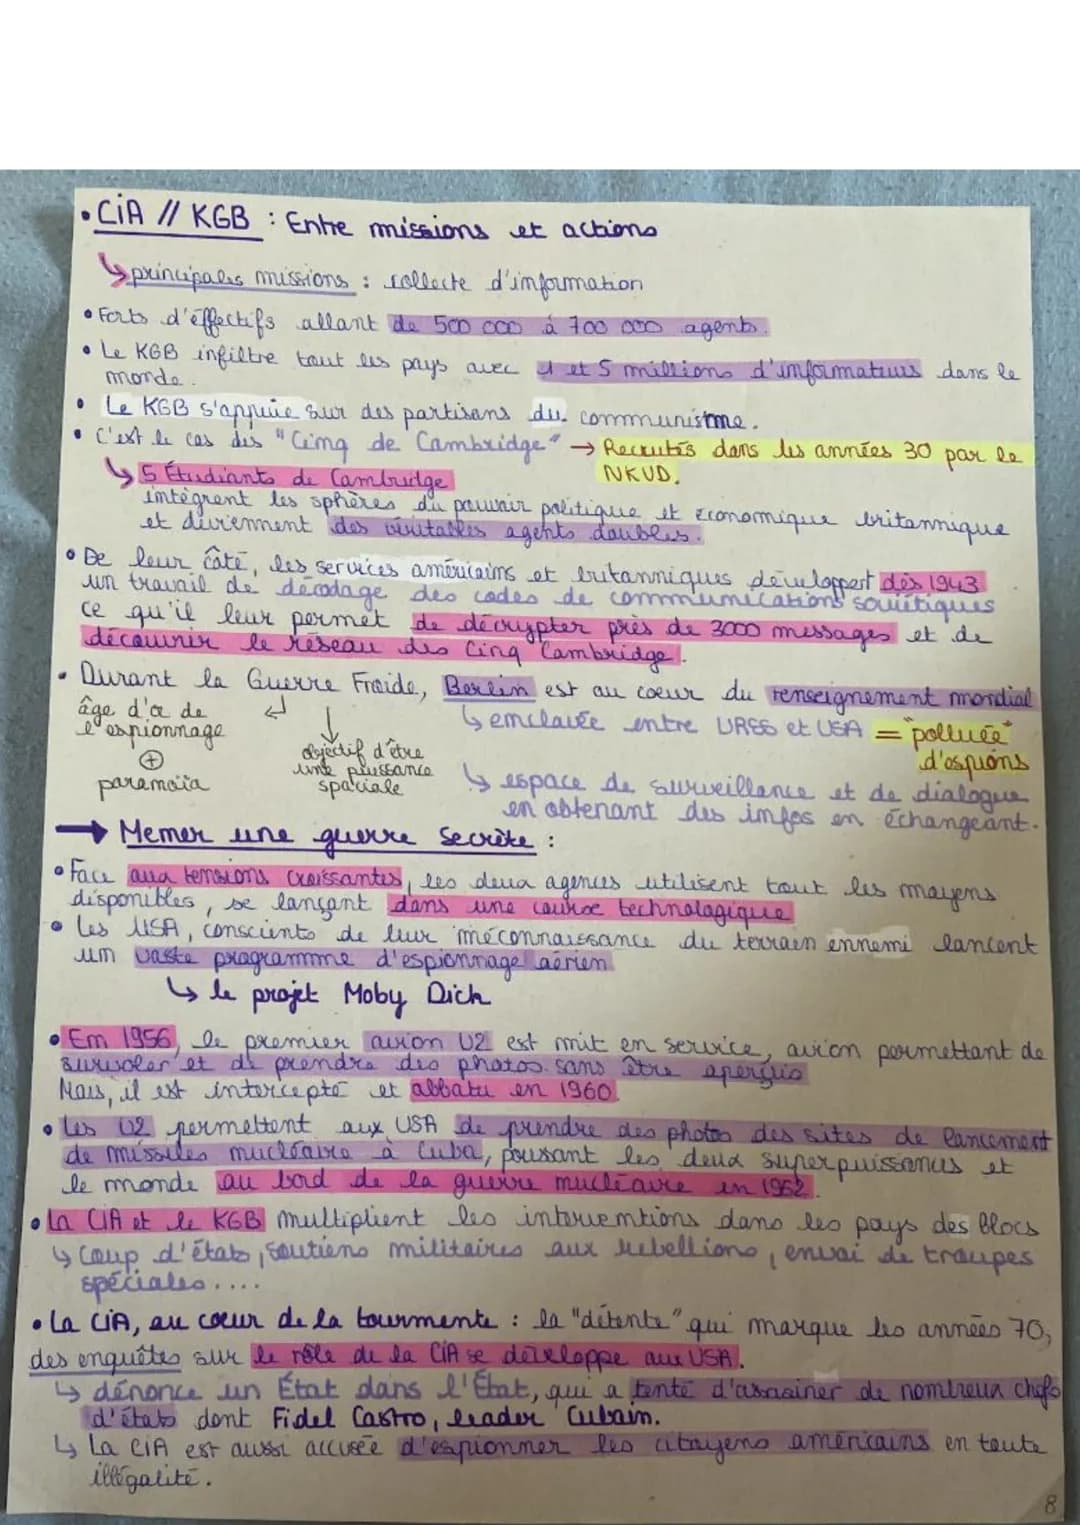 • CiA // KGB : Entre missions et actions
↳ principales missions : collecte d'information
• Forts d'éffectifs allant de 500 000 à 700 000 agents.
• Le KGB infiltre tout les pays avec 1 et 5 millions d'informateurs dans le
monde.
• Le KGB s'appuie sur des partisans du communisme.
• C'est le cas des "Cinq de Cambridge" → Recrutés dans les années 30 par le
NKUD.
↳ 5 Étudiants de Cambridge
intègrent les sphères du pouvoir politique et économique britannique
et deviennent des véritables agents doubles.
• De leur côté, les services américains et britanniques développent dès 1943
un travail de décodage des codes de communications soviétiques
ce qu'il leur permet de décrypter près de 3000 messages et de
découvrir le réseau des Cinq Cambridge.
• Durant la Guerre Froide, Berlin est au coeur du renseignement mondial
âge d'or de
l'espionnage
⊕
paranoïa
objectif d'être
une puissance
spaciale
↳ enclavée entre URSS et USA = "polluée"
d'espions
↳ espace de surveillance et de dialogue
en obtenant des infos en échangeant.
→ Mener une guerre secrète :
• Face aux tensions croissantes, les deux agences utilisent tout les moyens
disponibles, se lançant dans une course technologique
• Les USA, conscients de leur méconnaissance du terrain ennemi lancent
un vaste programme d'espionnage aérien
↳ le projet Moby Dick
• En 1956, le premier avion U2 est mit en service, avion permettant de
survoler et de prendre des photos sans être aperçus
Mais, il est intercepté et abbatu en 1960.
• Les U2 permettent aux USA de prendre des photos des sites de lancement
de missiles nucléaire à Cuba, poussant les deux superpuissances et
le monde au bord de la guerre nucléaire en 1962.
• La CIA et le KGB multiplient les interventions dans les pays des blocs
↳ Coup d'états, soutiens militaires aux rebellions, envoi de troupes
spéciales....
• La CIA, au cœur de la tourmente : la "détente" qui marque les années 70,
des enquêtes sur le rôle de la CIA se développe aux USA.
↳ dénonce un État dans l'État, qui a tenté d'assasiner de nombreux chefs
d'états dont Fidel Castro, leader Cubain.
↳ La CIA est aussi accusée d'espionner les citoyens américains en toute
illégalité.
8